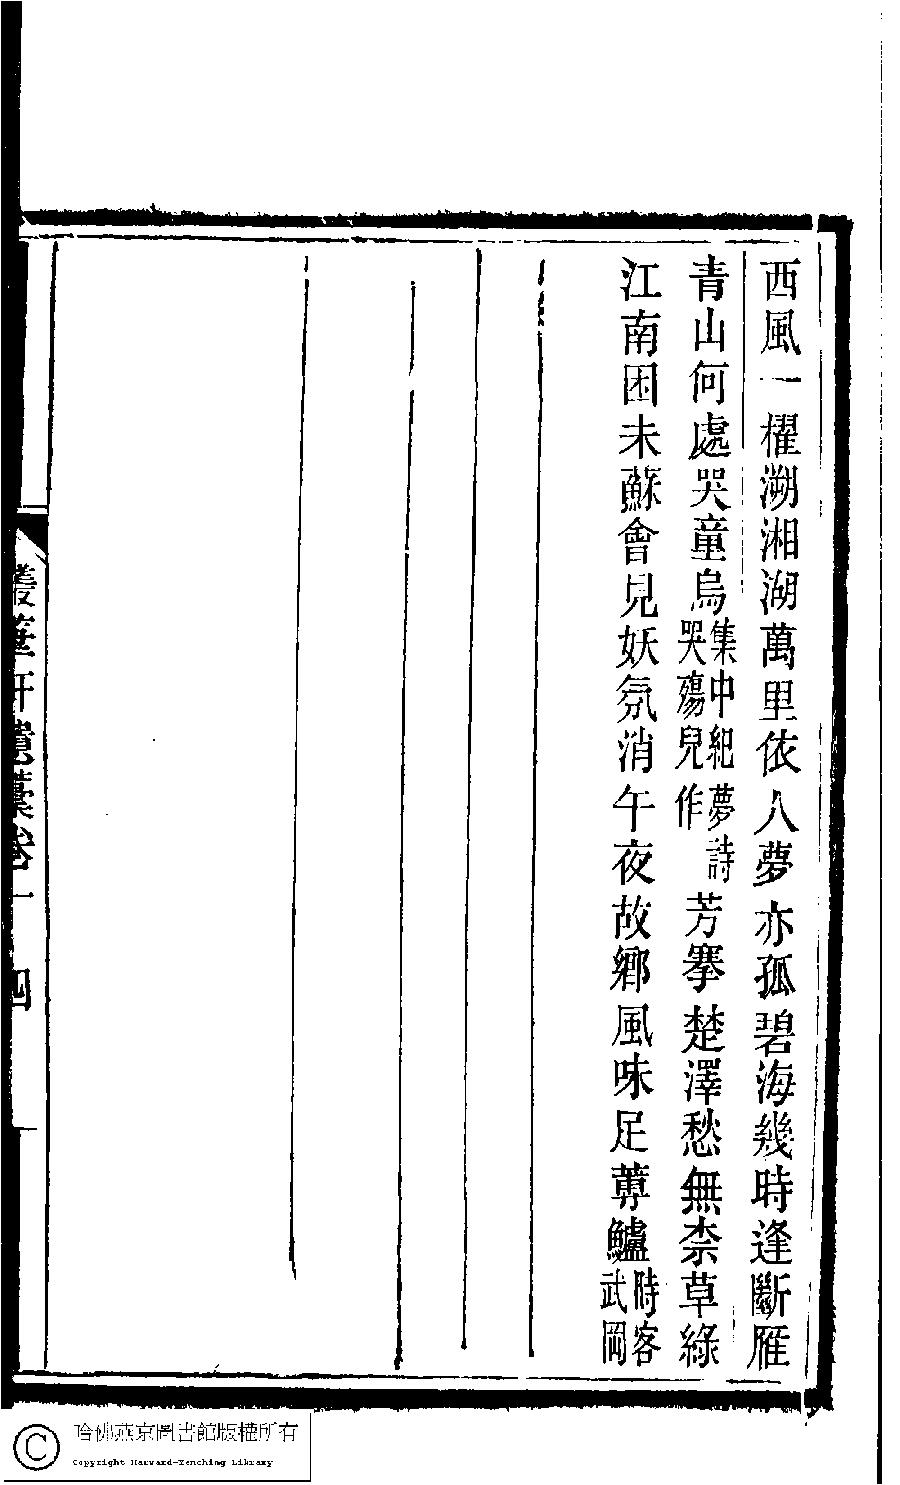 西風一櫂溯湘湖萬里依人夢亦孤碧海幾時逢斷雁
青山何處哭童烏集中紀夢詩哭殤兒作芳搴楚澤愁無柰草綠
江南困未蘇會見妖氛消午夜故鄉風味足蓴鱸時客武岡
叢筆軒遺藁卷一
四
哈佛燕京圖書館版權所有
Copyright Harvard-Yenching Library